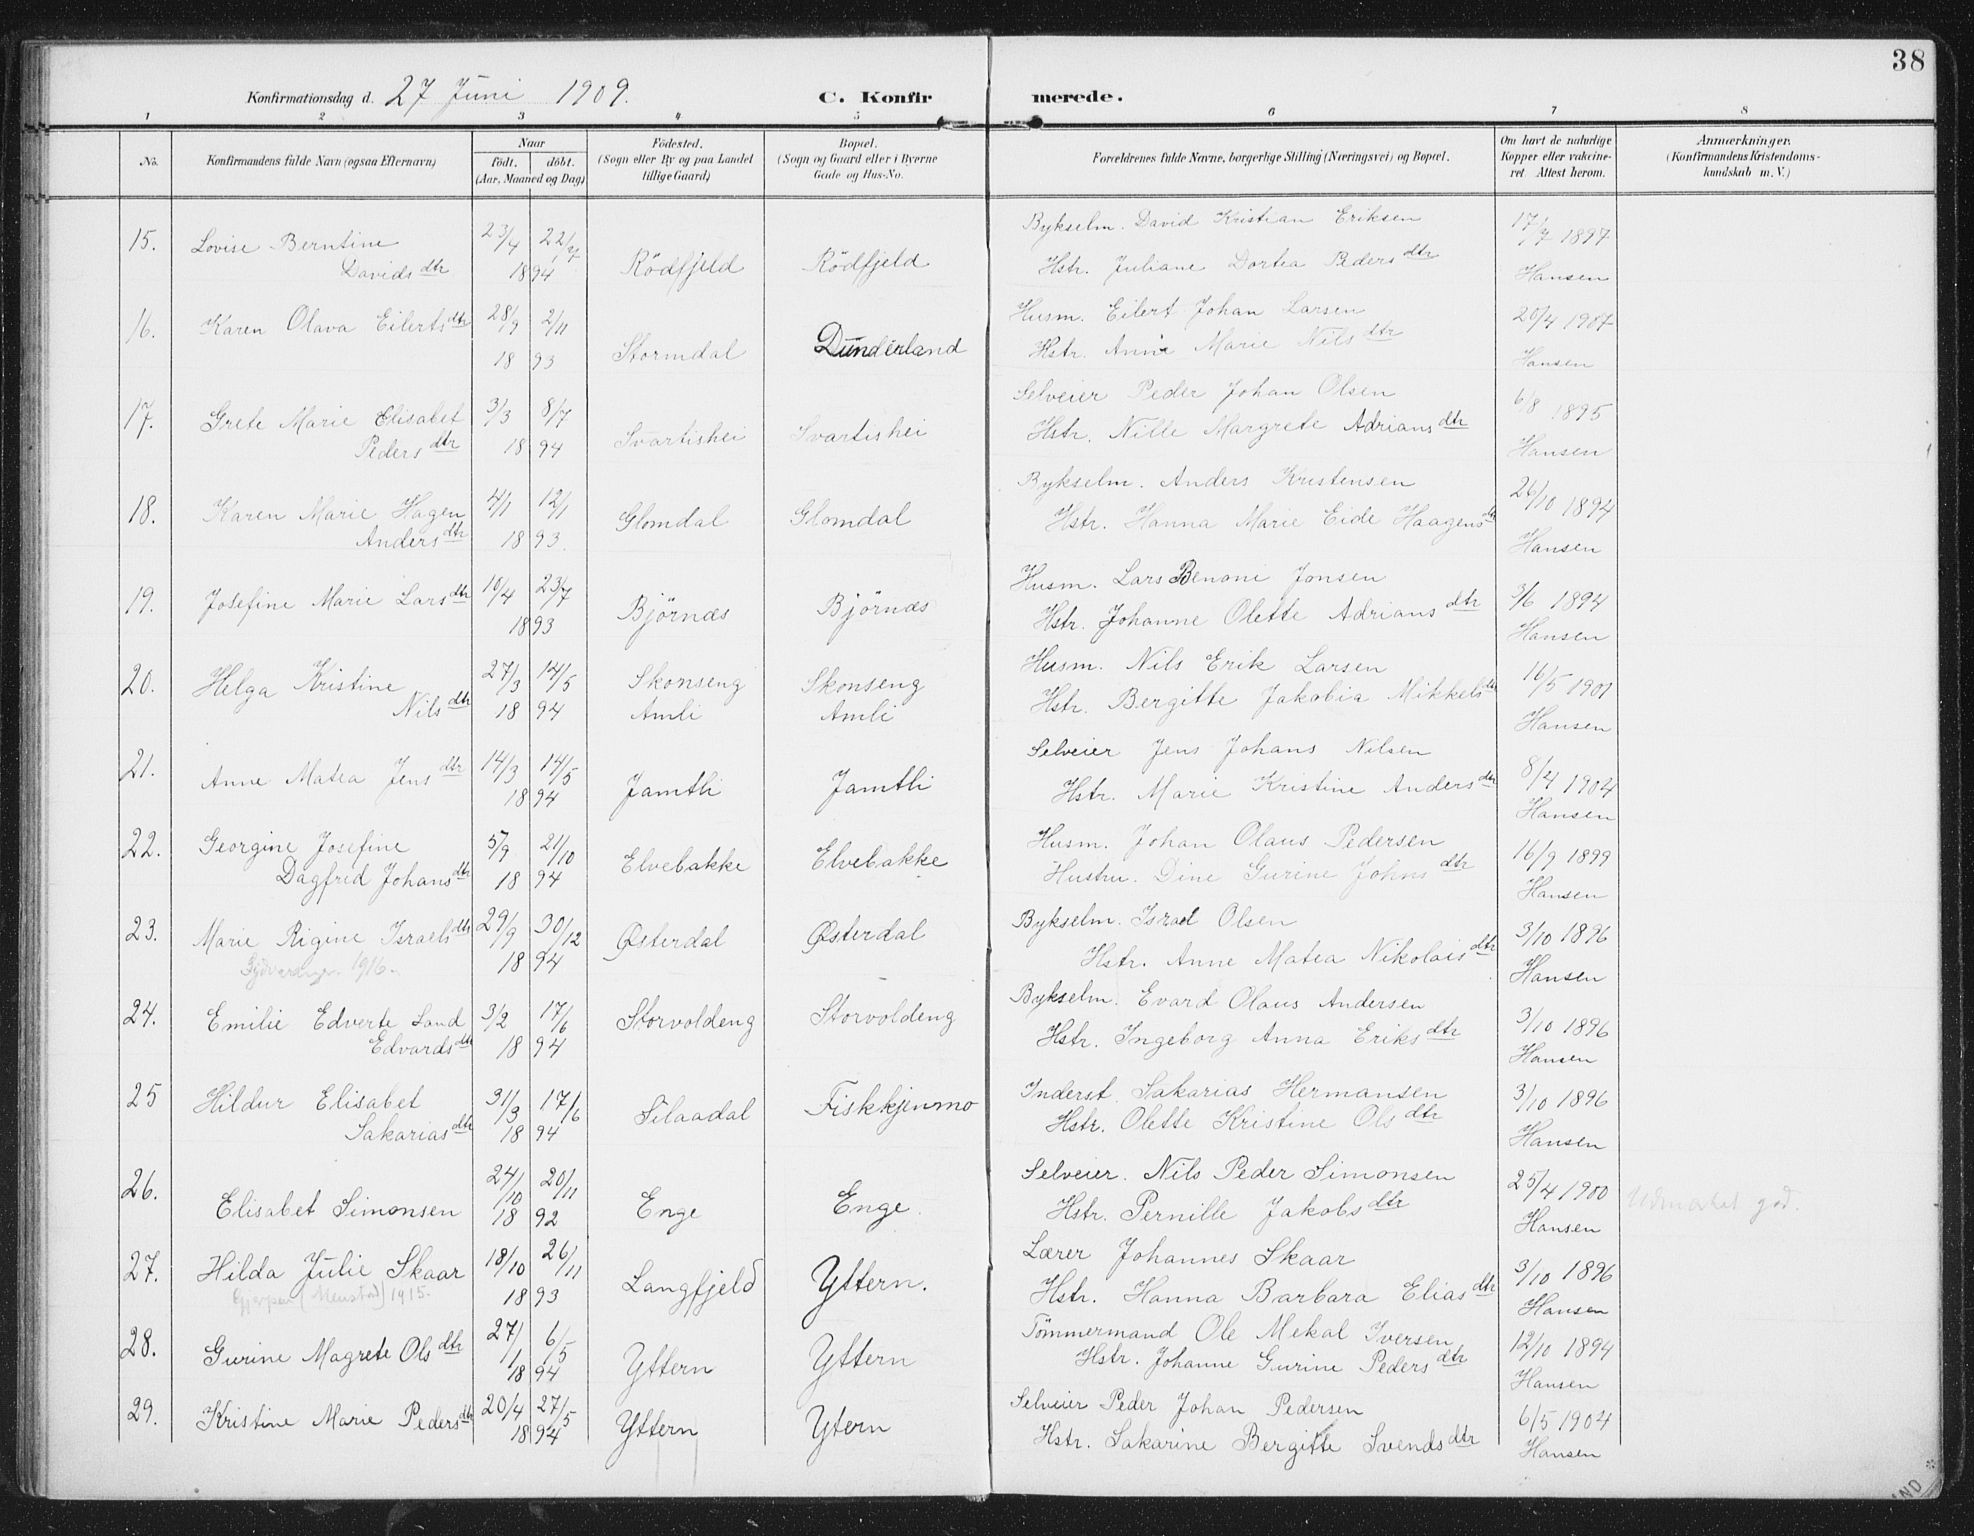 38
Konfirmationsdag d. 27 Juni 1909. C. Konfirmerede.
1 2 3 4 5 6 7 8
No.
Konfirmandens fulde Navn (ogsaa Efternavn)
Naar
født. døbt.
(Aar, Maaned og Dag)
Fødested.
(Sogn eller By og paa Landet
tillige Gaard)
Bopæl.
(Sogn og Gaard eller i Byerne
Gade og Hus-No.
Forældrenes fulde Navne, borgerlige Stilling (Næringsvei) og Bopæl.
Om havt de naturlige
Kopper eller vakcine-
ret. Attest herom.
Anmærkninger.
(Konfirmandens Kristendoms-
kundskab m. V.)
15. Lovise Berntine 23/4 22/7 Rödfjeld Rödfjeld Bykselm. David Kristian Eriksen 17/7 1897
Davidsdtr 18 94 Hstr. Juliane Dortea Pedersdtr Hansen
16. Karen Olava Eilertsdtr 28/9 2/11 Stormdal Dunderland Husm. Eilert Johan Larsen 20/4 1907
18 93 Hstr. Anne Marie Nilsdtr Hansen
17. Grete Marie Elisabet 3/3 8/7 Svartishei Svartishei Selveier Peder Johan Olsen 6/8 1895
Pedersdtr 18 94 Hstr. Nille Margrete Adriansdtr Hansen
18. Karen Marie Hagen 4/1 12/1 Glomdal Glomdal Bykselm. Anders Kristensen 26/10 1894
Andersdtr 18 93. Hstr. Hanna Marie Eide Haagensdtr Hansen
19. Josefine Marie Larsdtr 10/4 23/7 Björnæs Björnæs Husm. Lars Benoni Jonsen 3/6 1894
18 93 Hstr. Johanne Olette Adriansdtr Hansen
20. Helga Kristine 27/3 14/5 Skonseng Skonseng Husm. Nils Erik Larsen 16/5 1901
Nilsdtr 18 94 Amli Amli Hstr. Bergitte Jakobia Mikkelsdtr Hansen
21. Anne Matea Jensdtr 14/3 14/5 Jamtli Jamtli Selveier Jens Johans Nilsen 8/4 1904
18 94 Hstr. Marie Kristine Andersdtr Hansen
22. Georgine Josefine 5/9 21/10 Elvebakke Elvebakke Husm. Johan Olaus Pedersen 16/9 1899
Dagfrid Johansdtr 18 94 Hustru. Dine Gurine Johnsdtr Hansen
23. Marie Rigine Israelsdtr 29/9 30/12 Østerdal Østerdal Bykselm. Israel Olsen 3/10 1896
1916. 18 94 Hstr. Anne Matea Nikolaisdtr Hansen
24. Emilie Edverte Sand 3/2 17/6 Storvoldeng Storvoldeng Bykselm. Evard Olaus Andersen 3/10 1896
Edvardsdtr 18 94 Hstr. Ingeborg Anna Eriksdtr Hansen
25 Hildur Elisabet 31/3 17/6 Silaadal Fiskkjenmo Inderst. Sakarias Hermansen 3/10 1896
Sakariasdtr 18 94 Hstr. Olette Kristine Olsdtr Hansen
26. Elisabet Simonsen 24/10 20/11 Enge Enge. Selveier. Nils Peder Simonsen 25/4 1900 Udmærket god.
18 92 Hstr. Pernille Jakobsdtr Hansen
27. Hilda Julie Skaar 18/10 26/11 Langfjeld Yttern. Lærer Johannes Skaar 3/10 1896
Gjerpen (Menstad) 1915. 18 93 Hstr. Hanna Barbara Eliasdtr Hansen
28. Gurine Magrete Olsdtr 27/1 6/5 Yttern Yttern Tömmermand Ole Mekal Iversen 12/10 1894
18 94 Hstr. Johanne Gurine Pedersdtr Hansen
29. Kristine Marie Pedersdtr 20/4 27/5 Yttern Ytern Selveier Peder Johan Pedersen 6/5 1904
18 94 Hstr. Sakarine Bergitte Svendsdtr Hansen